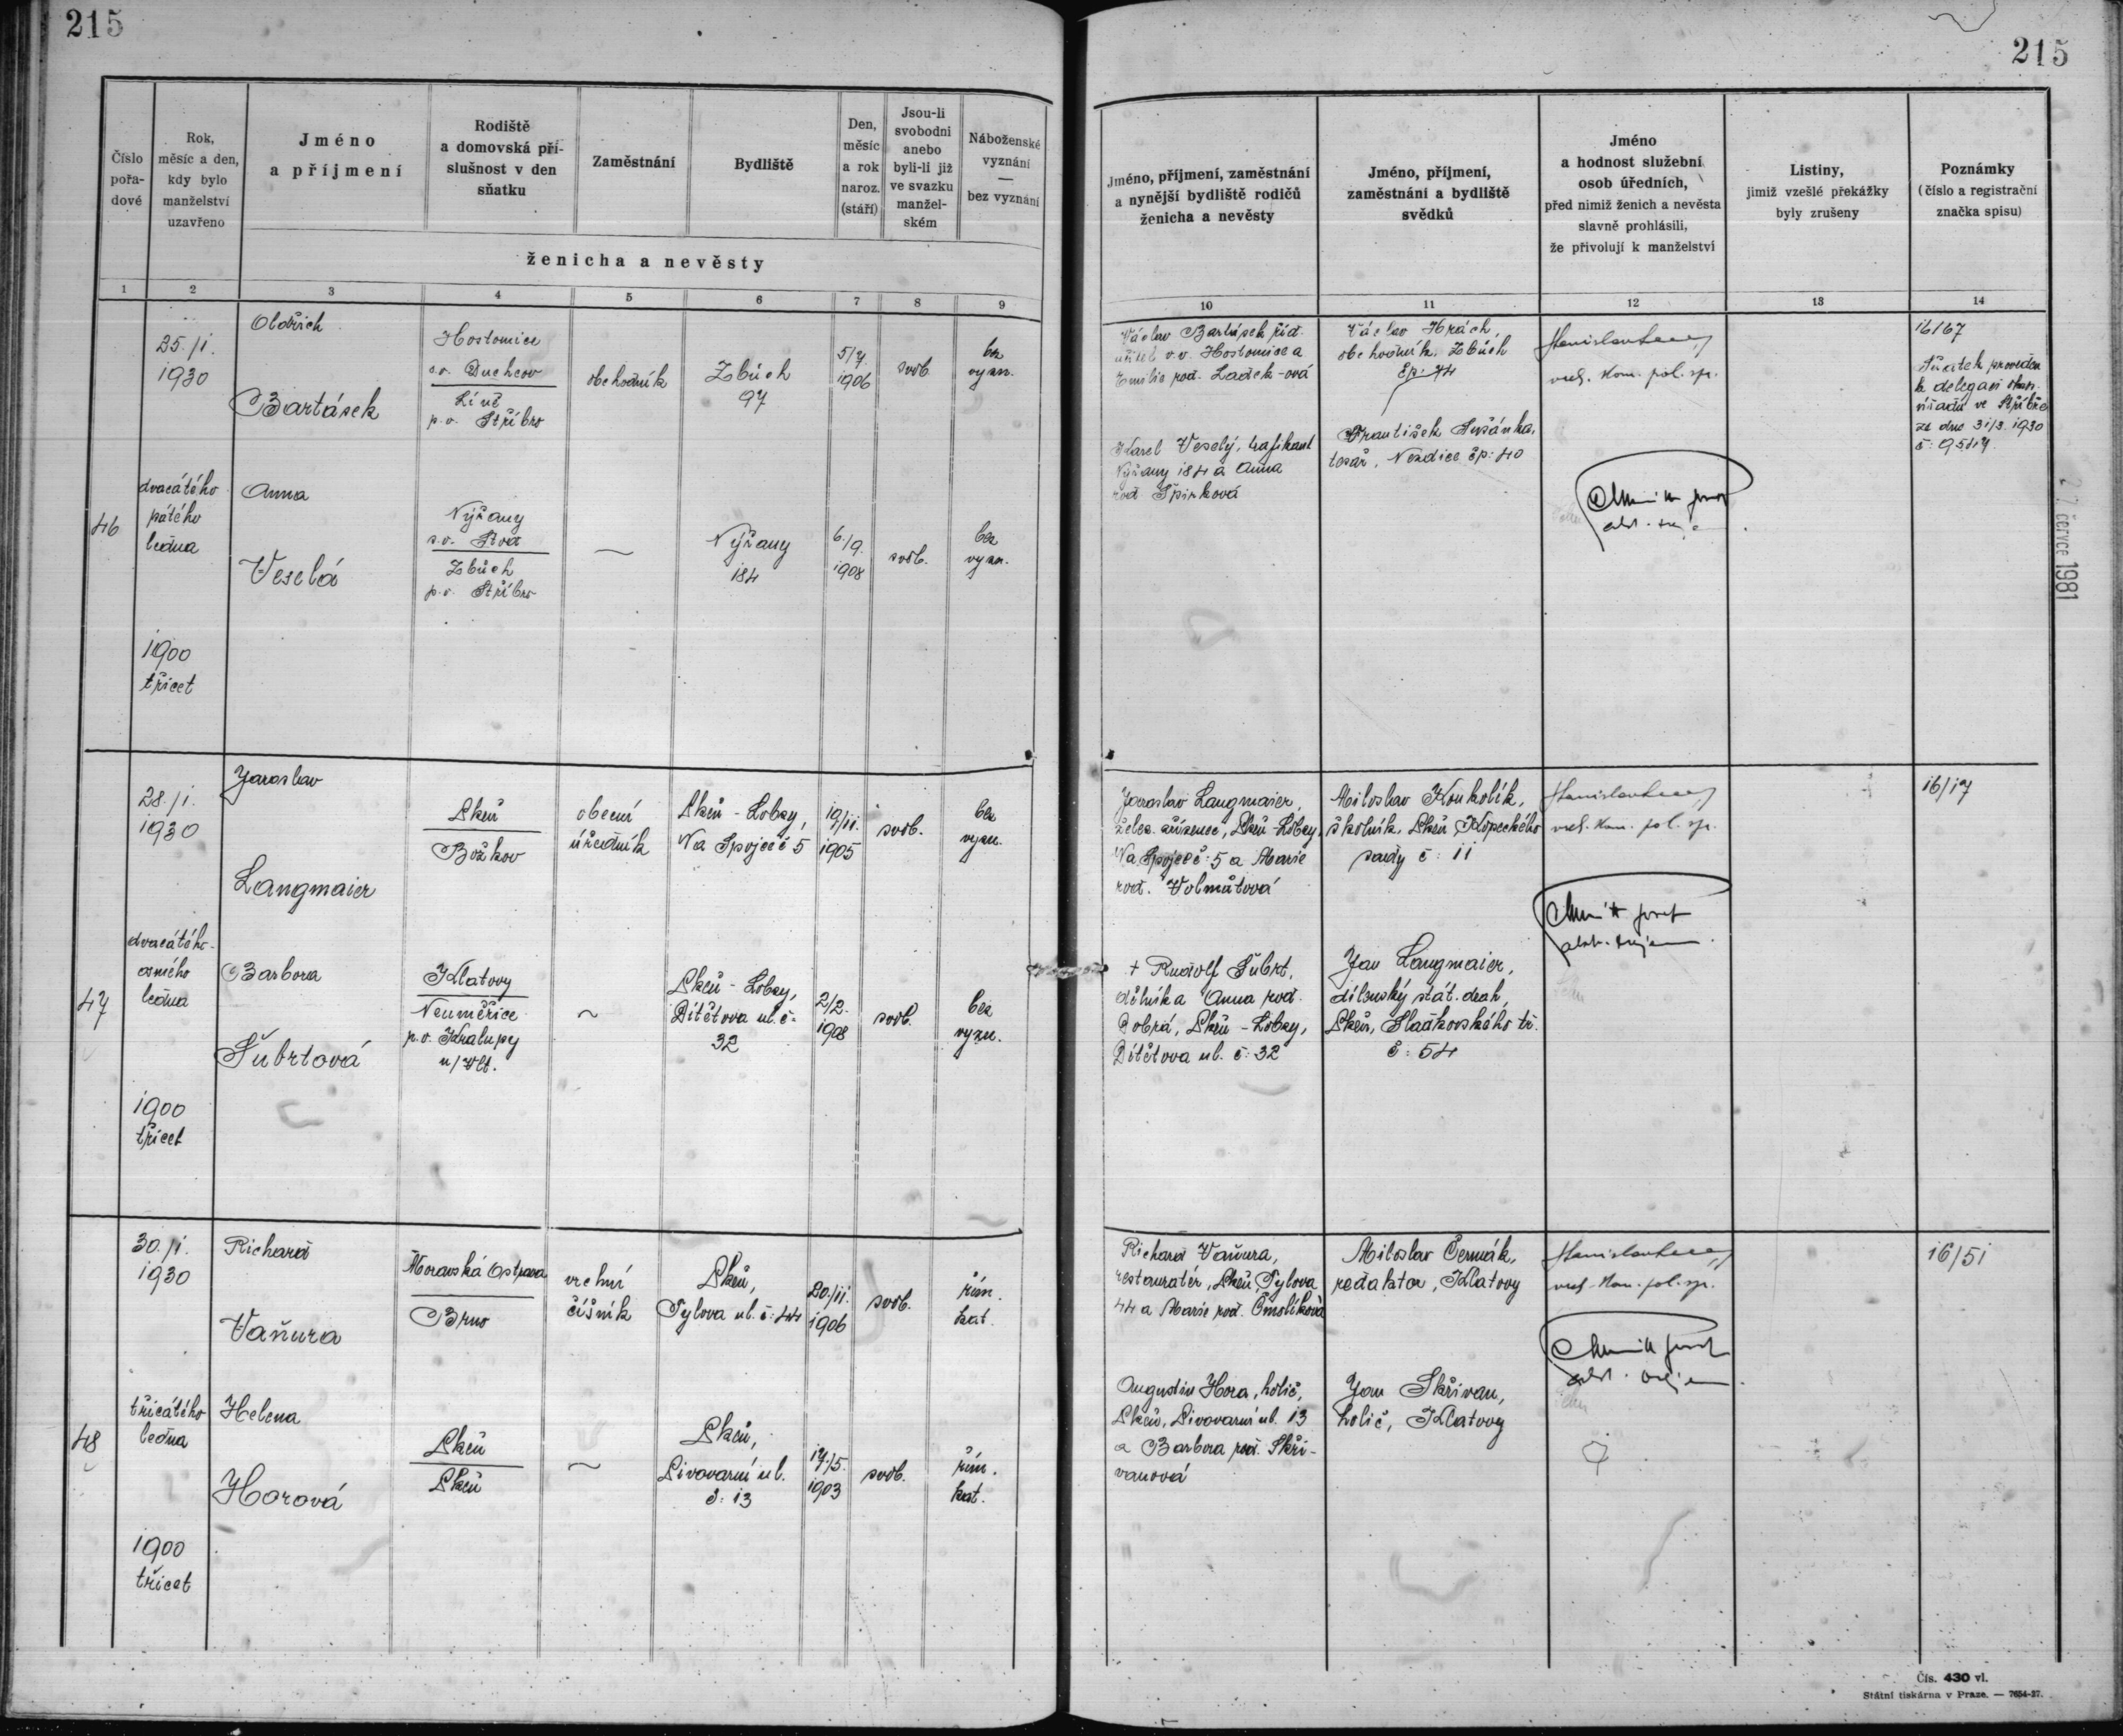 215
215
Číslo pořa- dové
Rok, měsíc a den, kdy bylo manželství uzavřeno
Jméno a příjmení
Rodiště a domovská pří- slušnost v den sňatku
Zaměstnání
Bydliště
Den, měsíc a rok naroz. (stáří)
Jsou-li svobodni anebo byli-li již ve svazku manžel- ském
Náboženské vyznání — bez vyznání
ženicha a nevěsty
Jméno, příjmení, zaměstnání a nynější bydliště rodičů ženicha a nevěsty
Jméno, příjmení, zaměstnání a bydliště svědků
Jméno a hodnost služební osob úředních, před nimiž ženich a nevěsta slavně prohlásili, že přivolují k manželství
Listiny, jimiž vzešlé překážky byly zrušeny
Poznámky (číslo a registrační značka spisu)
1 2 3 4 5 6 7 8 9
10 11 12 13 14
46
25./1.
1930
dvacátého
pátého
ledna
1900
třicet
Oldřich
Bartásek
Hostomice
s.o. Duchcov
Líně
p.o. Stříbro
obchodník
Zbůch
97
5/7.
1906
svob.
bez
vyzn.
Anna
Veselá
Nýřany
s.o. Stod
Zbůch
p.o. Stříbro
~
Nýřany
184
6./9.
1908
svob.
bez
vyzn.
Václav Bartásek říd.
učitel v.v. Hostomice a
Emilie roz. Ladek-ová
Karel Veselý, trafikant
Nýřany 184 a Anna
roz. Špirková
Václav Hrách
obchodník, Zbůch
čp: 74
František Suzánka,
tesař, Nezdice čp: 40
vrch. kom. pol. sp.
16/67
Sňatek proveden
k delegaci okres.
úřadu ve Stříbře
ze dne 31/3. 1930
27. července 1981
47
28./1.
1930
dvacátého
osmého
ledna
1900
třicet
Jaroslav
Langmaier
Plzeň
Božkov
obecní
úředník
Plzeň - Lobzy,
Na Spojce č 5
19/11.
1905
svob.
bez
vyzn.
Barbora
Šubrtová
Klatovy
Neuměřice
p.o. Kralupy
n/Vlt.
~
Plzeň - Lobzy,
Dítětova ul. č:
32
2/2.
1908
svob.
bez
vyzn.
Jaroslav Langmaier,
želez. zřízenec, Plzeň-Lobzy,
Na Spojce č: 5 a Marie
roz. Volmůtová
+ Rudolf Šubrt,
dělník a Anna roz.
Dobrá, Plzeň - Lobzy,
Dítětova ul. č: 32
Miloslav Koukolík,
školník, Plzeň, Kopeckého
sady č: 11
Jan Langmaier,
dílenský stát. drah,
Plzeň, Sladkovského tř.
č: 54
vrch. kom. pol. sp.
16/17
48
30./1.
1930
třicátého
ledna
1900
třicet
Richard
Vaňura
Moravská Ostrava
Brno
vrchní
číšník
Plzeň,
Tylova ul. č: 44
20./11.
1906
svob.
řím.
kat.
Helena
Horová
Plzeň
Plzeň
~
Plzeň,
Pivovarní ul.
č: 13
17./5.
1903
svob.
řím.
kat.
Richard Vaňura,
restauratér, Plzeň, Tylova
44 a Marie roz. Čmolíková
Augustin Hora, holič,
Plzeň, Pivovarní ul. 13
a Barbora roz. Skři-
vanová
Miloslav Čermák,
redaktor, Klatovy
Jan Skřivan,
holič, Klatovy
vrch. kom. pol. sp.
16/51
Čís. 430 vl.
Státní tiskárna v Praze. — 7654-27.